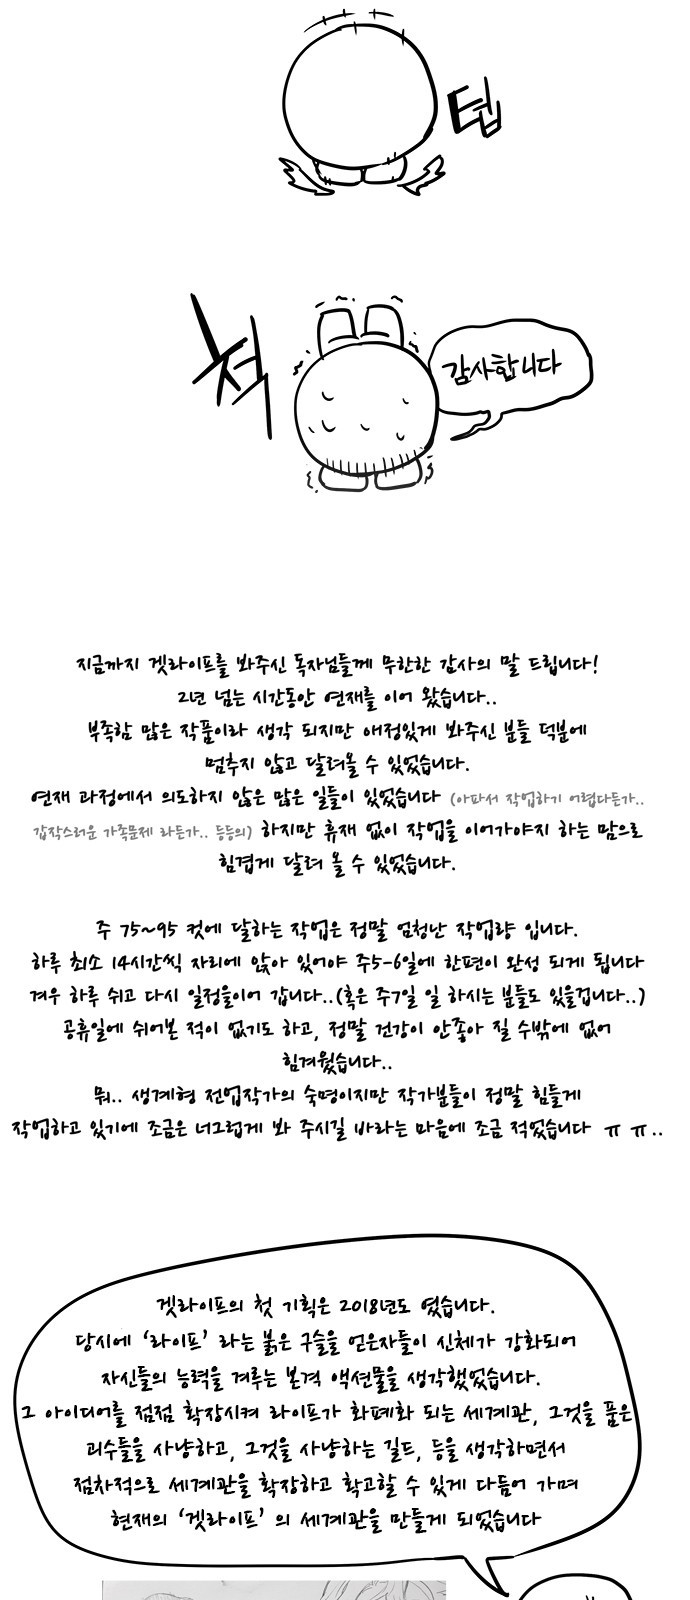 텁
척
감사합니다
지금까지 겟라이프를 봐주신 독자님들께 무한한 감사의 말 드립니다!
2년 넘는 시간동안 연재를 이어 왔습니다..
부족함 많은 작품이라 생각 되지만 애정있게 봐주신 분들 덕분에
멈추지 않고 달려올 수 있었습니다.
연재 과정에서 의도하지 않은 많은 일들이 있었습니다 (아파서 작업하기 어렵다든가..
갑작스러운 가족문제 라든가.. 등등의) 하지만 휴재 없이 작업을 이어가야지 하는 맘으로
힘겹게 달려 올 수 있었습니다.
주 75~95 컷에 달하는 작업은 정말 엄청난 작업량 입니다.
하루 최소 14시간씩 자리에 앉아 있어야 주5-6일에 한편이 완성 되게 됩니다
겨우 하루 쉬고 다시 일정을이어 갑니다..(혹은 주7일 일 하시는 분들도 있을겁니다..)
공휴일에 쉬어본 적이 없기도 하고, 정말 건강이 안좋아 질 수밖에 없어
힘겨웠습니다..
뭐.. 생계형 전업작가의 숙명이지만 작가분들이 정말 힘들게
작업하고 있기에 조금은 너그럽게 봐 주시길 바라는 마음에 조금 적었습니다 ㅠ ㅠ..
겟라이프의 첫 기획은 2018년도 였습니다.
당시에 ‘라이프’ 라는 붉은 구슬을 얻은자들이 신체가 강화되어
자신들의 능력을 겨루는 본격 액션물을 생각했었습니다.
그 아이디어를 점점 확장시켜 라이프가 화폐화 되는 세계관, 그것을 품은
괴수들을 사냥하고, 그것을 사냥하는 길드, 등을 생각하면서
점차적으로 세계관을 확장하고 확고할 수 있게 다듬어 가며
현재의 ‘겟라이프’ 의 세계관을 만들게 되었습니다